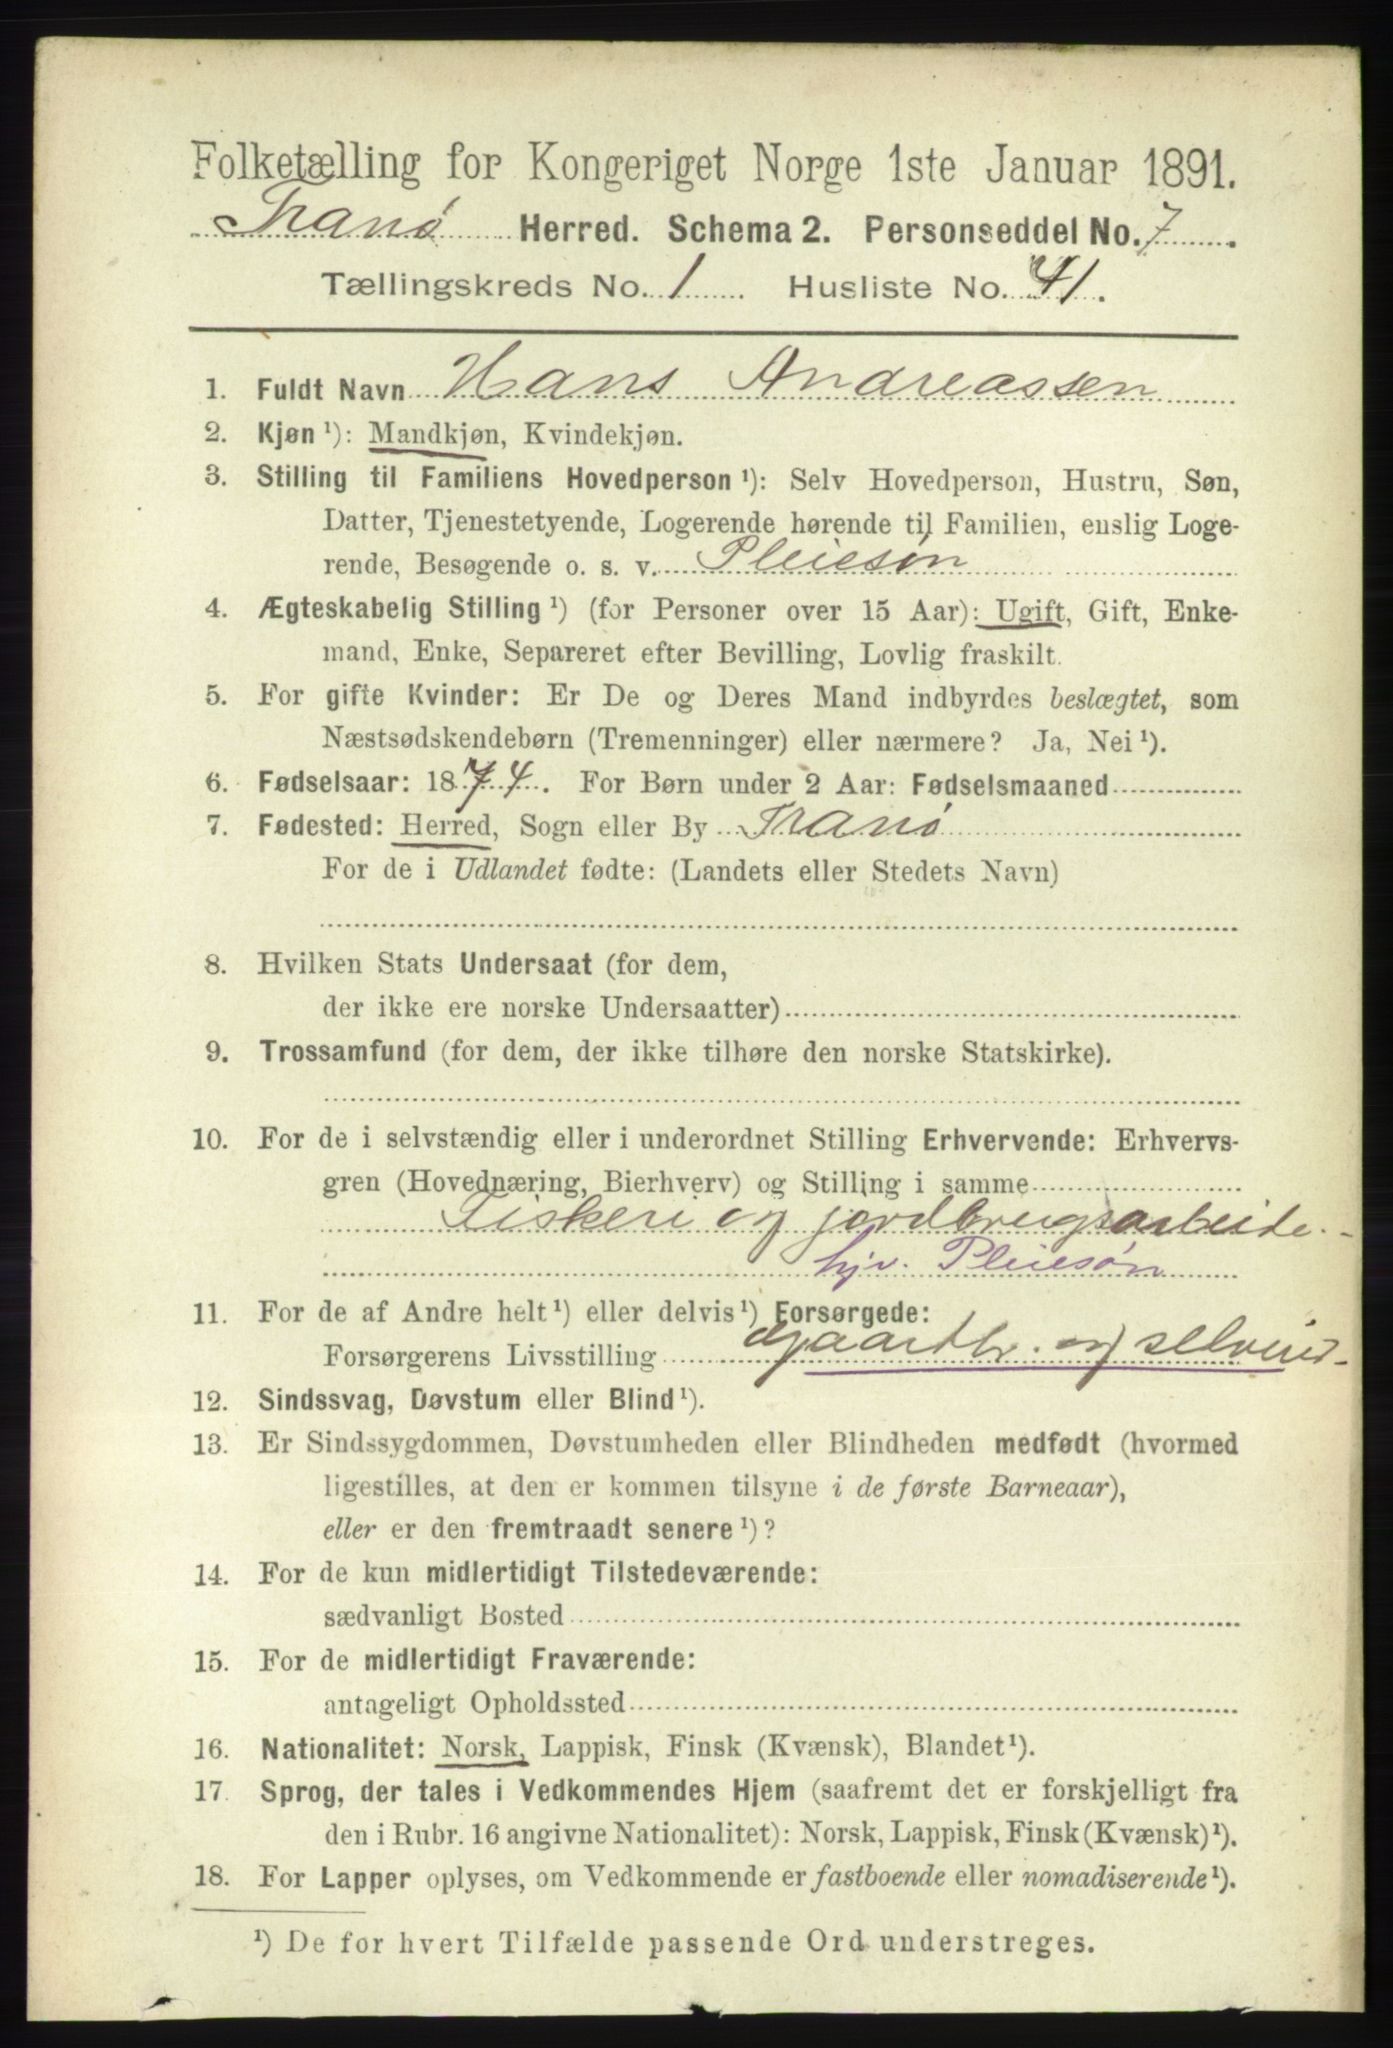 Folketælling for Kongeriget Norge 1ste Januar 1891.
Tranø Herred. Schema 2. Personseddel No. 7
Tællingskreds No. 1 Husliste No. 41.
1. Fuldt Navn Hans Andreassen
2. Kjøn ¹): Mandkjøn, Kvindekjøn.
3. Stilling til Familiens Hovedperson ¹): Selv Hovedperson, Hustru, Søn,
Datter, Tjenestetyende, Logerende hørende til Familien, enslig Loge-
rende, Besøgende o. s. v. Pleiesøn
4. Ægteskabelig Stilling ¹) (for Personer over 15 Aar): Ugift, Gift, Enke-
mand, Enke, Separeret efter Bevilling, Lovlig fraskilt.
5. For gifte Kvinder: Er De og Deres Mand indbyrdes beslægtet, som
Næstsødskendebørn (Tremenninger) eller nærmere? Ja, Nei ¹).
6. Fødselsaar: 1874. For Børn under 2 Aar: Fødselsmaaned
7. Fødested: Herred, Sogn eller By Tranø
For de i Udlandet fødte: (Landets eller Stedets Navn)
8. Hvilken Stats Undersaat (for dem,
der ikke ere norske Undersaatter)
9. Trossamfund (for dem, der ikke tilhøre den norske Statskirke).
10. For de i selvstændig eller i underordnet Stilling Erhvervende: Erhvervs-
gren (Hovednæring, Bierhverv) og Stilling i samme
Fiskeri og jordbrugsarbeide.
hjv. Pleiesøn
11. For de af Andre helt ¹) eller delvis ¹) Forsørgede:
Forsørgerens Livsstilling Gaardbr. og selveier
12. Sindssvag, Døvstum eller Blind ¹).
13. Er Sindssygdommen, Døvstumheden eller Blindheden medfødt (hvormed
ligestilles, at den er kommen tilsyne i de første Barneaar),
eller er den fremtraadt senere ¹)?
14. For de kun midlertidigt Tilstedeværende:
sædvanligt Bosted
15. For de midlertidigt Fraværende:
antageligt Opholdssted
16. Nationalitet: Norsk, Lappisk, Finsk (Kvænsk), Blandet ¹).
17. Sprog, der tales i Vedkommendes Hjem (saafremt det er forskjelligt fra
den i Rubr. 16 angivne Nationalitet): Norsk, Lappisk, Finsk (Kvænsk) ¹).
18. For Lapper oplyses, om Vedkommende er fastboende eller nomadiserende ¹).
¹) De for hvert Tilfælde passende Ord understreges.